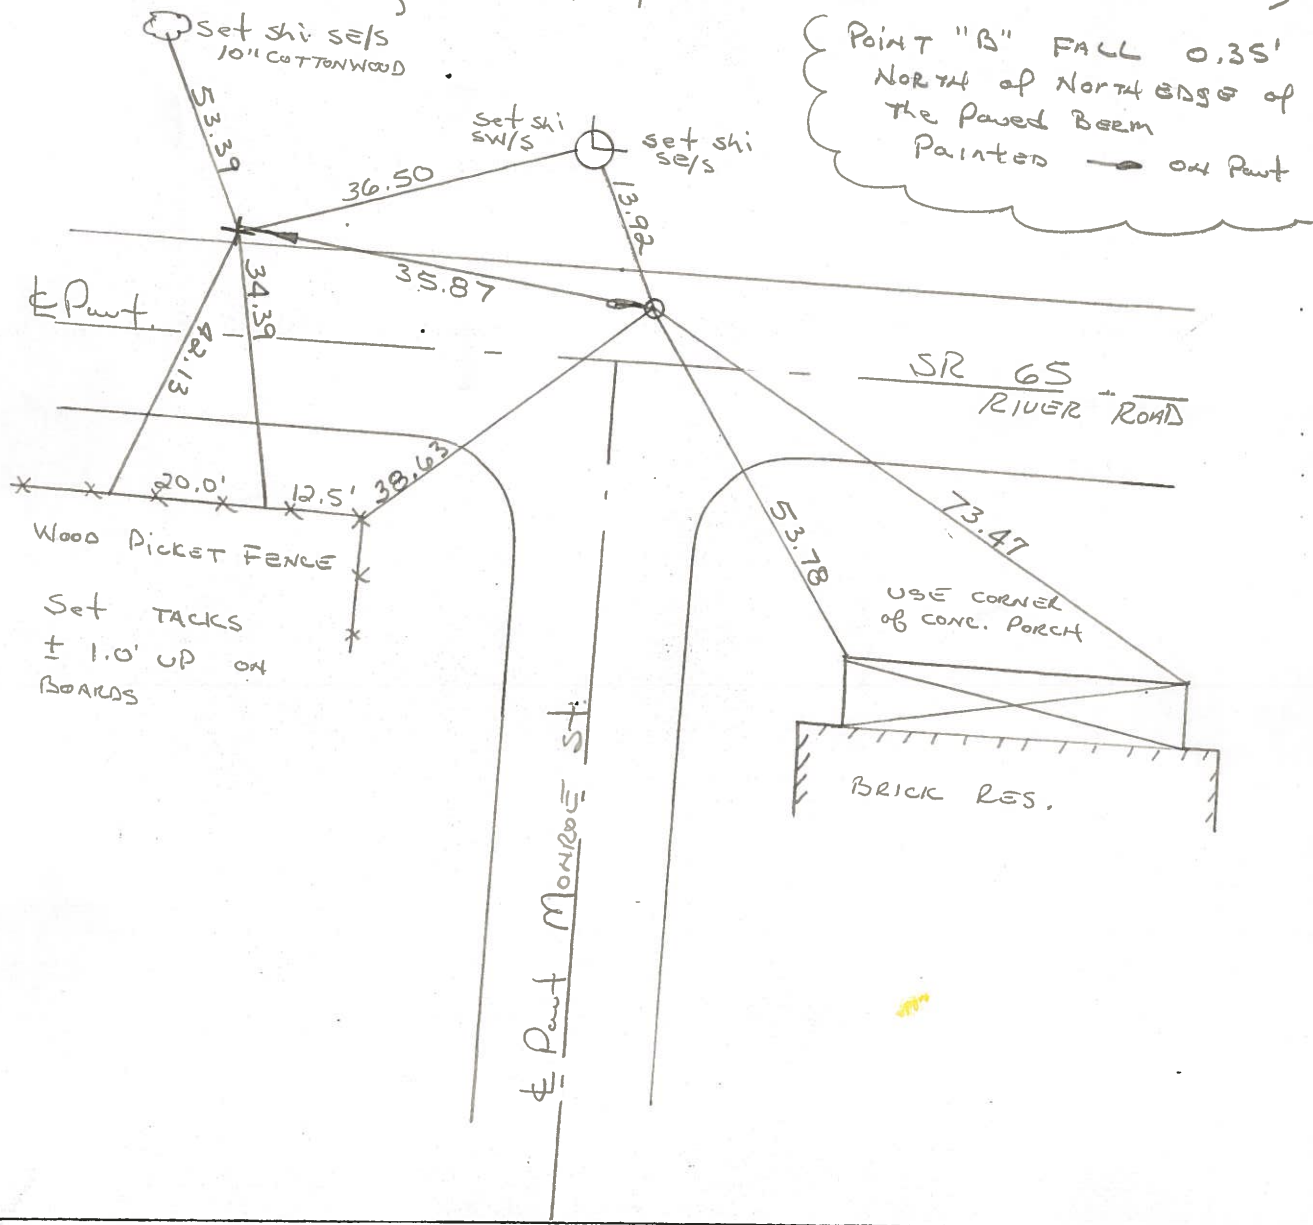 Set shi SE/S
10" COTTONWOOD
POINT "B" FALL 0.35'
NORTH of NORTH EDGE of
The Paved BERM
PAINTED ON Pavt
53.39
set shi
SW/S
set shi
SE/S
36.50
13.92
35.87
34.39
42.13
℄ Pavt.
SR 65
RIVER ROAD
20.0'
12.5'
38.63
WOOD PICKET FENCE
Set TACKS
± 1.0' UP ON
BOARDS
53.78
73.47
USE CORNER
of CONC. PORCH
BRICK RES.
℄ Pavt MONROE St.